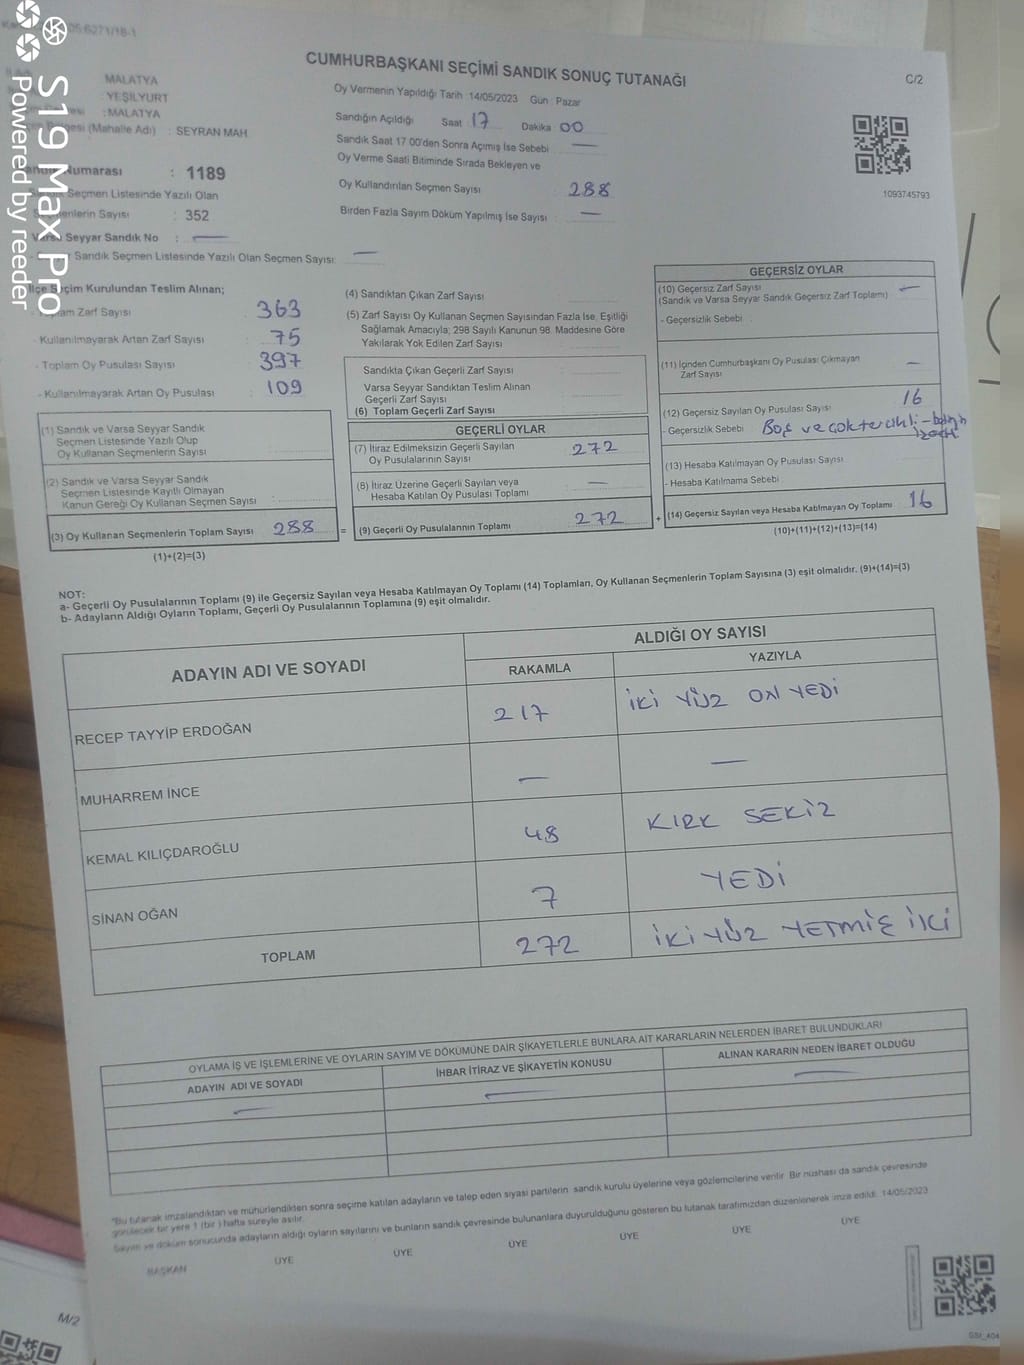 S19 Max Pro
Powered by reeder
CUMHURBAŞKANI SEÇİMİ SANDIK SONUÇ TUTANAĞI
C/2
MALATYA
: YEŞİLYURT
: MALATYA
(Mahalle Adı) : SEYRAN MAH.
Numarası : 1189
Seçmen Listesinde Yazılı Olan
Sayısı : 352
Varsa Seyyar Sandık No : —
Sandık Seçmen Listesinde Yazılı Olan Seçmen Sayısı: —
Oy Vermenin Yapıldığı Tarih : 14/05/2023 Gün : Pazar
Sandığın Açıldığı Saat 17 Dakika 00
Sandık Saat 17.00'den Sonra Açımış İse Sebebi —
Oy Verme Saati Bitiminde Sırada Bekleyen ve
Oy Kullandırılan Seçmen Sayısı : 288
Birden Fazla Sayım Döküm Yapılmış İse Sayısı : —
1093745793
İlçe Seçim Kurulundan Teslim Alınan;
Toplam Zarf Sayısı : 363
- Kullanılmayarak Artan Zarf Sayısı : 75
- Toplam Oy Pusulası Sayısı : 397
- Kullanılmayarak Artan Oy Pusulası : 109
(1) Sandık ve Varsa Seyyar Sandık
Seçmen Listesinde Yazılı Olup
Oy Kullanan Seçmenlerin Sayısı :
(2) Sandık ve Varsa Seyyar Sandık
Seçmen Listesinde Kayıtlı Olmayan
Kanun Gereği Oy Kullanan Seçmen Sayısı :
(3) Oy Kullanan Seçmenlerin Toplam Sayısı 288 =
(1)+(2)=(3)
(4) Sandıktan Çıkan Zarf Sayısı
(5) Zarf Sayısı Oy Kullanan Seçmen Sayısından Fazla İse, Eşitliği
Sağlamak Amacıyla; 298 Sayılı Kanunun 98. Maddesine Göre
Yakılarak Yok Edilen Zarf Sayısı
Sandıkta Çıkan Geçerli Zarf Sayısı :
Varsa Seyyar Sandıktan Teslim Alınan
Geçerli Zarf Sayısı :
(6) Toplam Geçerli Zarf Sayısı :
GEÇERLİ OYLAR
(7) İtiraz Edilmeksizin Geçerli Sayılan
Oy Pusulalarının Sayısı : 272
(8) İtiraz Üzerine Geçerli Sayılan veya
Hesaba Katılan Oy Pusulası Toplamı : —
(9) Geçerli Oy Pusulalarının Toplamı : 272 +
GEÇERSİZ OYLAR
(10) Geçersiz Zarf Sayısı —
(Sandık ve Varsa Seyyar Sandık Geçersiz Zarf Toplamı)
- Geçersizlik Sebebi :
(11) İçinden Cumhurbaşkanı Oy Pusulası Çıkmayan
Zarf Sayısı —
(12) Geçersiz Sayılan Oy Pusulası Sayısı : 16
- Geçersizlik Sebebi : Boş ve çok tercihli -
(13) Hesaba Katılmayan Oy Pusulası Sayısı
- Hesaba Katılmama Sebebi
(14) Geçersiz Sayılan veya Hesaba Katılmayan Oy Toplamı : 16
(10)+(11)+(12)+(13)=(14)
NOT:
a- Geçerli Oy Pusulalarının Toplamı (9) ile Geçersiz Sayılan veya Hesaba Katılmayan Oy Toplamı (14) Toplamları, Oy Kullanan Seçmenlerin Toplam Sayısına (3) eşit olmalıdır. (9)+(14)=(3)
b- Adayların Aldığı Oyların Toplamı, Geçerli Oy Pusulalarının Toplamına (9) eşit olmalıdır.
ADAYIN ADI VE SOYADI
ALDIĞI OY SAYISI
RAKAMLA
YAZIYLA
RECEP TAYYİP ERDOĞAN 217 İKİ YÜZ ON YEDİ
MUHARREM İNCE — —
KEMAL KILIÇDAROĞLU 48 KIRK SEKİZ
SİNAN OĞAN 7 YEDİ
TOPLAM 272 İKİ YÜZ YETMİŞ İKİ
OYLAMA İŞ VE İŞLEMLERİNE VE OYLARIN SAYIM VE DÖKÜMÜNE DAİR ŞİKAYETLERLE BUNLARA AİT KARARLARIN NELERDEN İBARET BULUNDUKLARI
ADAYIN ADI VE SOYADI
İHBAR İTİRAZ VE ŞİKAYETİN KONUSU
ALINAN KARARIN NEDEN İBARET OLDUĞU
— — —
*Bu tutanak imzalandıktan ve mühürlendikten sonra seçime katılan adayların ve talep eden siyasi partilerin sandık kurulu üyelerine veya gözlemcilerine verilir. Bir nüshası da sandık çevresinde
görülecek bir yere 1 (bir) hafta süreyle asılır.
Sayım ve döküm sonucunda adayların aldığı oyların sayılarını ve bunların sandık çevresinde bulunanlara duyurulduğunu gösteren bu tutanak tarafımızdan düzenlenerek imza edildi. 14/05/2023
BAŞKAN ÜYE ÜYE ÜYE ÜYE ÜYE ÜYE
M/2